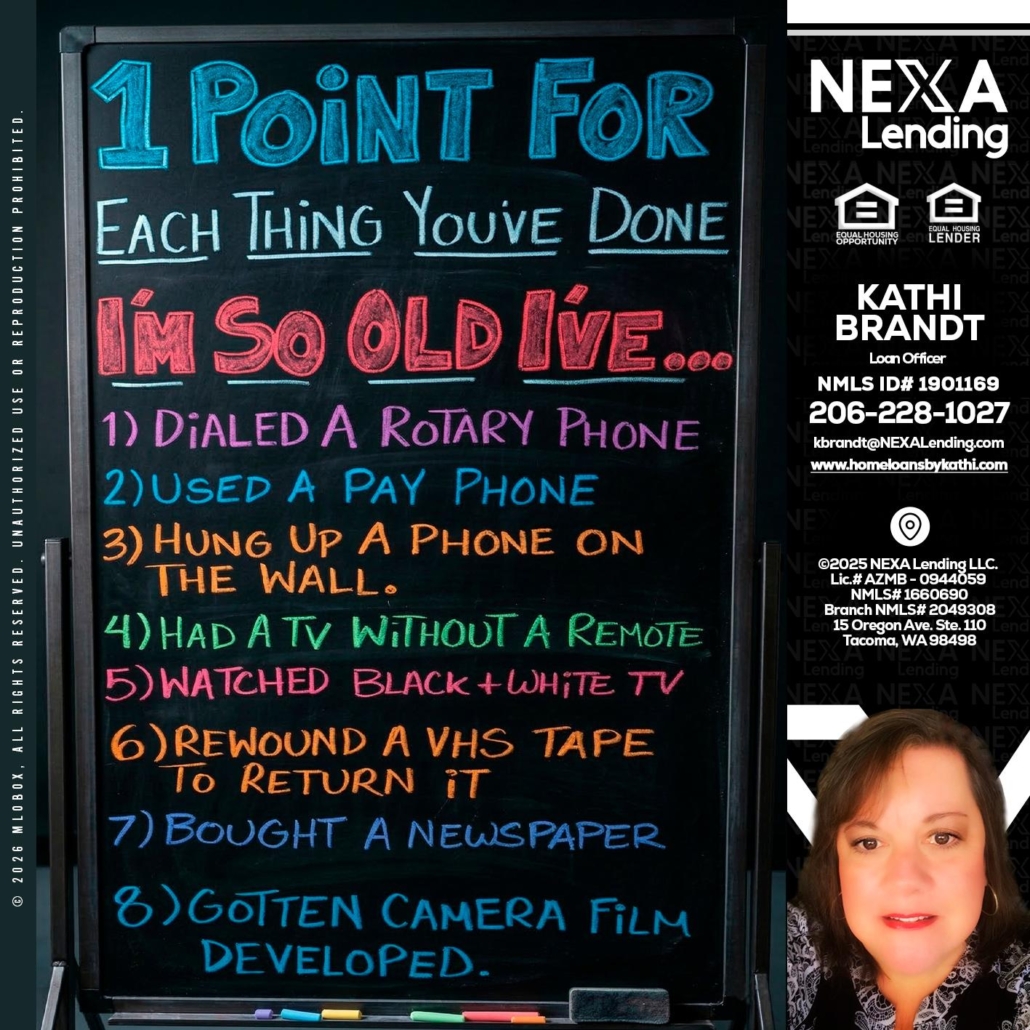 © 2026 MLOBOX, ALL RIGHTS RESERVED. UNAUTHORIZED USE OR REPRODUCTION PROHIBITED.
1 POiNT FOR
EACH THING YOU'VE DONE
I'M SO OLD I'VE...
1) DiALED A ROTARY PHONE
2) USED A PAY PHONE
3) HUNG UP A PHONE ON
THE WALL.
4) HAD A TV WiTHOUT A REMOTE
5) WATCHED BLACK + WHiTE TV
6) REWOUND A VHS TAPE
TO RETURN iT
7) BOUGHT A NEWSPAPER
8) GOTTEN CAMERA FiLM
DEVELOPED.
NEXA
Lending
EQUAL HOUSING
OPPORTUNITY
EQUAL HOUSING
LENDER
KATHI
BRANDT
Loan Officer
NMLS ID# 1901169
206-228-1027
kbrandt@NEXALending.com
www.homeloansbykathi.com
©2025 NEXA Lending LLC.
Lic.# AZMB - 0944059
NMLS# 1660690
Branch NMLS# 2049308
15 Oregon Ave. Ste. 110
Tacoma, WA 98498